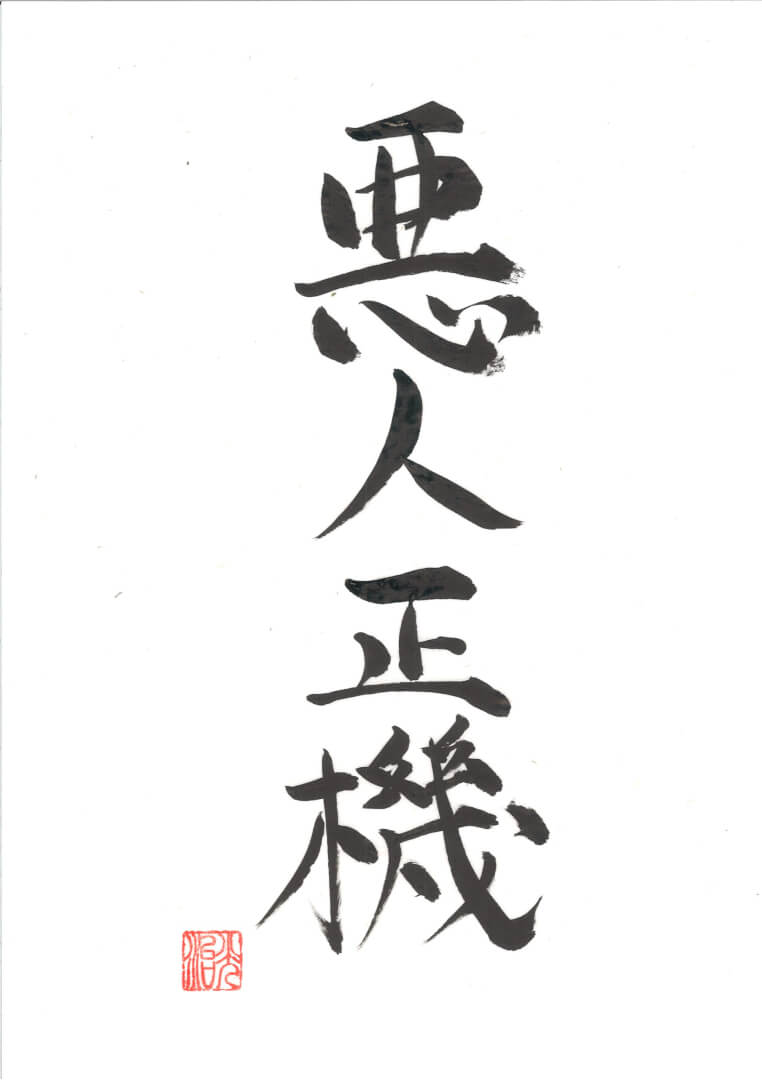 悪人正機